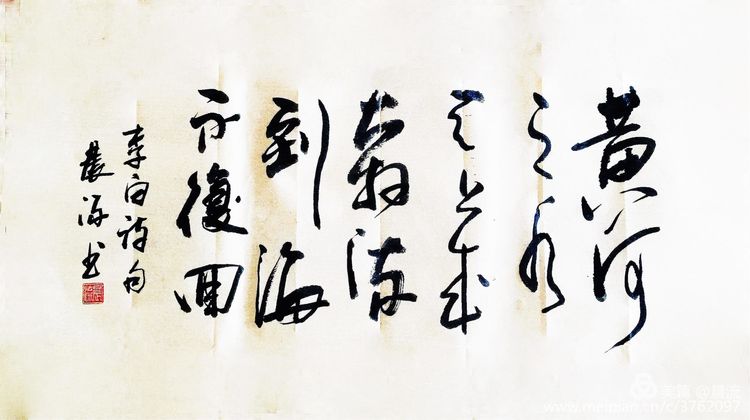 黄河
之水
天上来
奔流
到海
不復回
李白诗句
书
美篇
www.meipian.cn/c/3762097